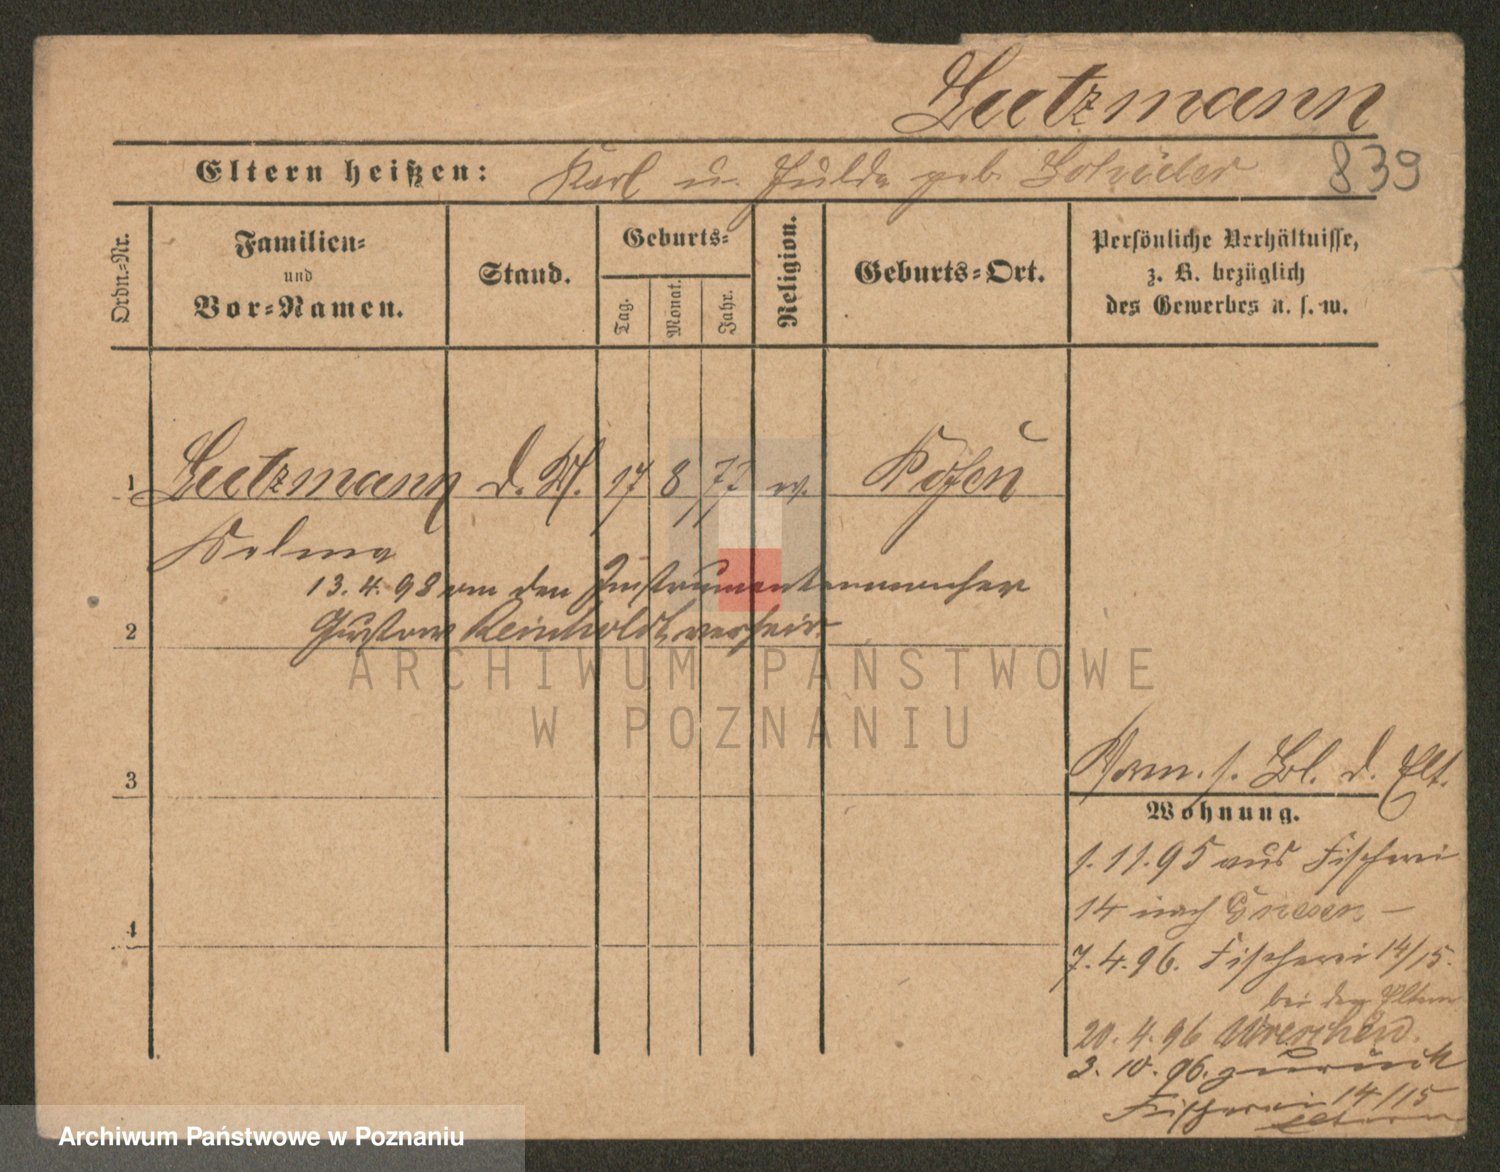 Lutzmann
Eltern heißen: Karl u. Hulda geb. Schüler 839
Ordn.-Nr.
Familien-
und
Vor-Namen.
Stand.
Geburts-
Tag.
Monat.
Jahr.
Religion.
Geburts-Ort.
Persönliche Verhältnisse,
z. B. bezüglich
des Gewerbes u. s. w.
1 Lutzmann d. 17 8 77 ev. Posen
Selma
13. 4. 98 an den Instrumentenmacher
2 Gustav Reinholdt verheir.
ARCHIWUM PAŃSTWOWE
W POZNANIU
3
4
s. Bl. d. Elt.
Wohnung.
1. 11. 95 aus Fischerei
14 nach Gnesen –
7. 4. 96. Fischerei 14/15.
bei den Eltern
20. 4. 96 Wreschen.
3. 10. 96. zurück
Fischerei 14/15
Eltern
Archiwum Państwowe w Poznaniu